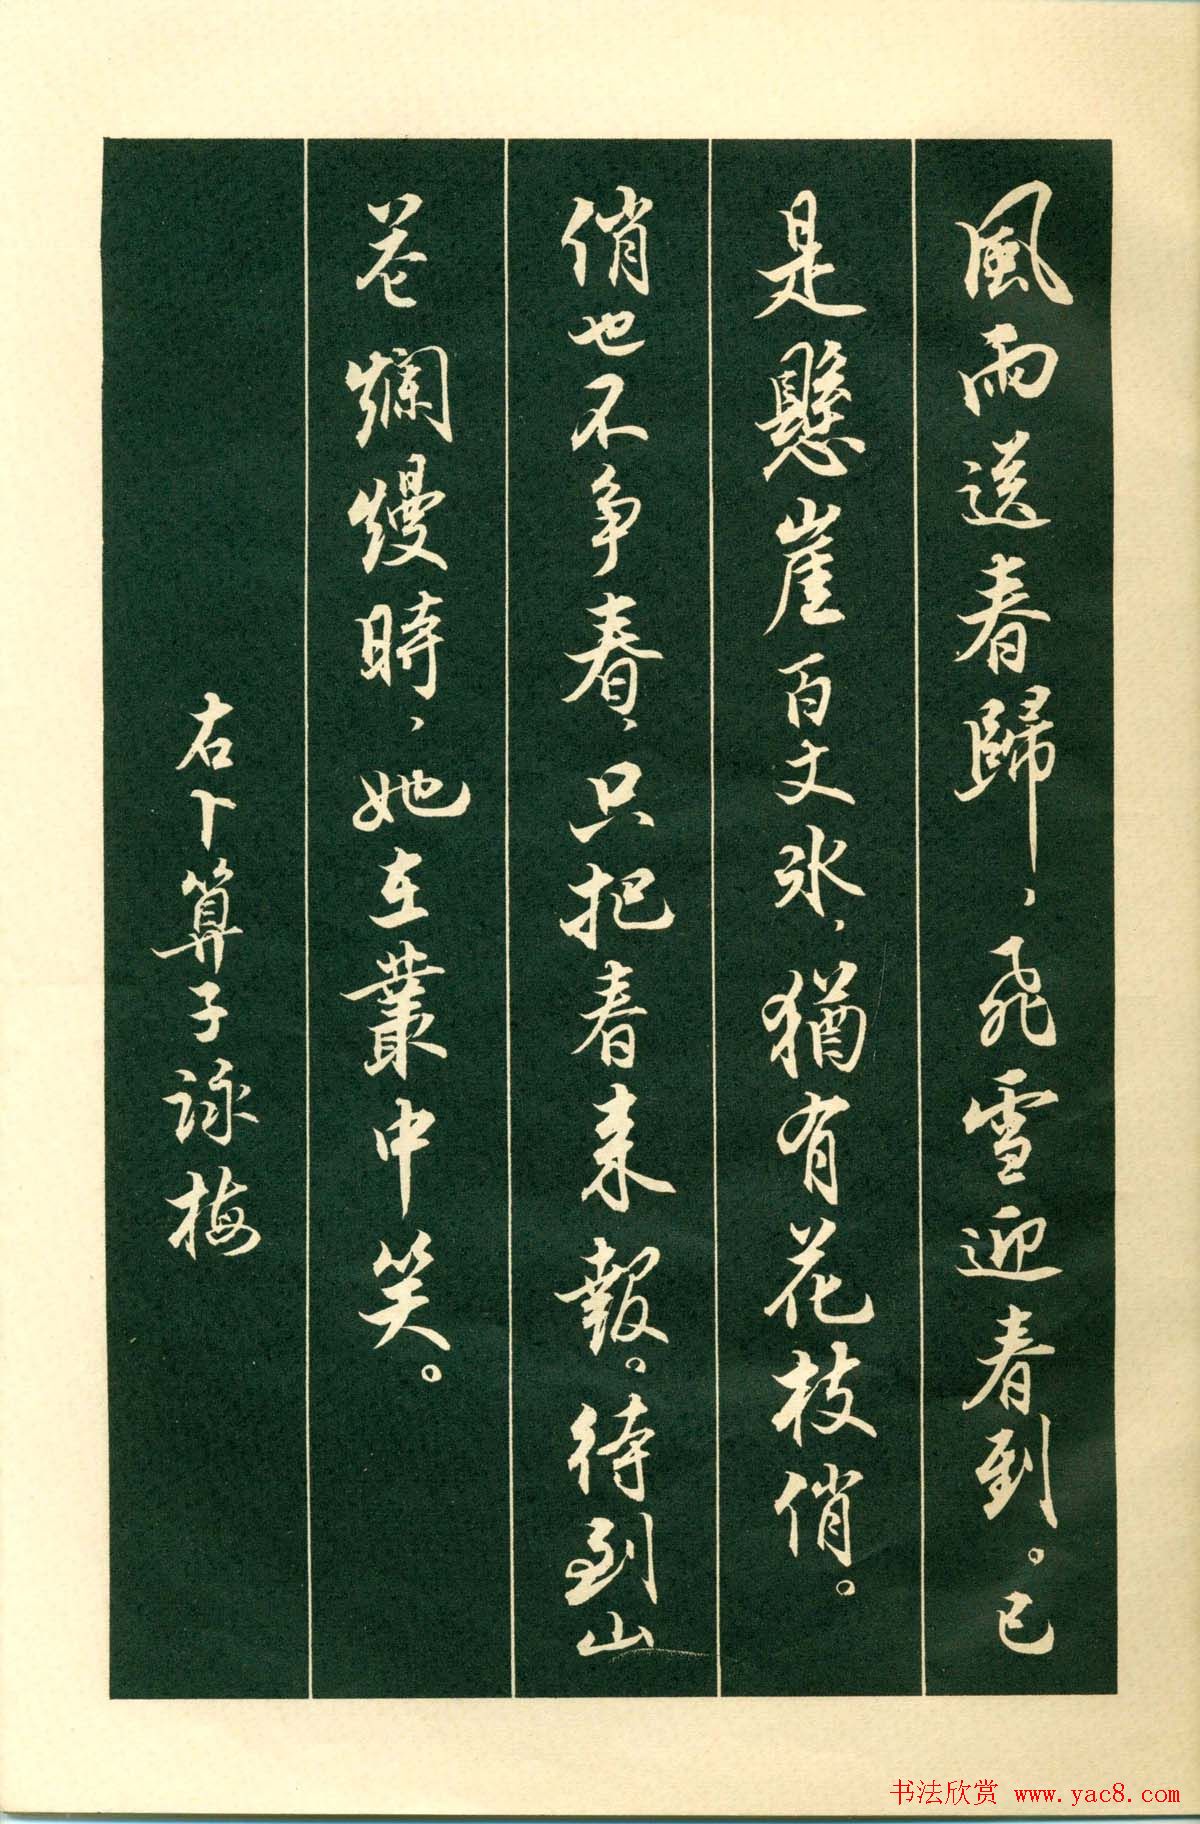 風雨送春歸、飛雪迎春到。已
是懸崖百丈冰、猶有花枝俏。
俏也不争春、只把春来報。待到山
花爛熳時、她在叢中笑。
右卜算子詠梅
书法欣赏 www.yac8.com